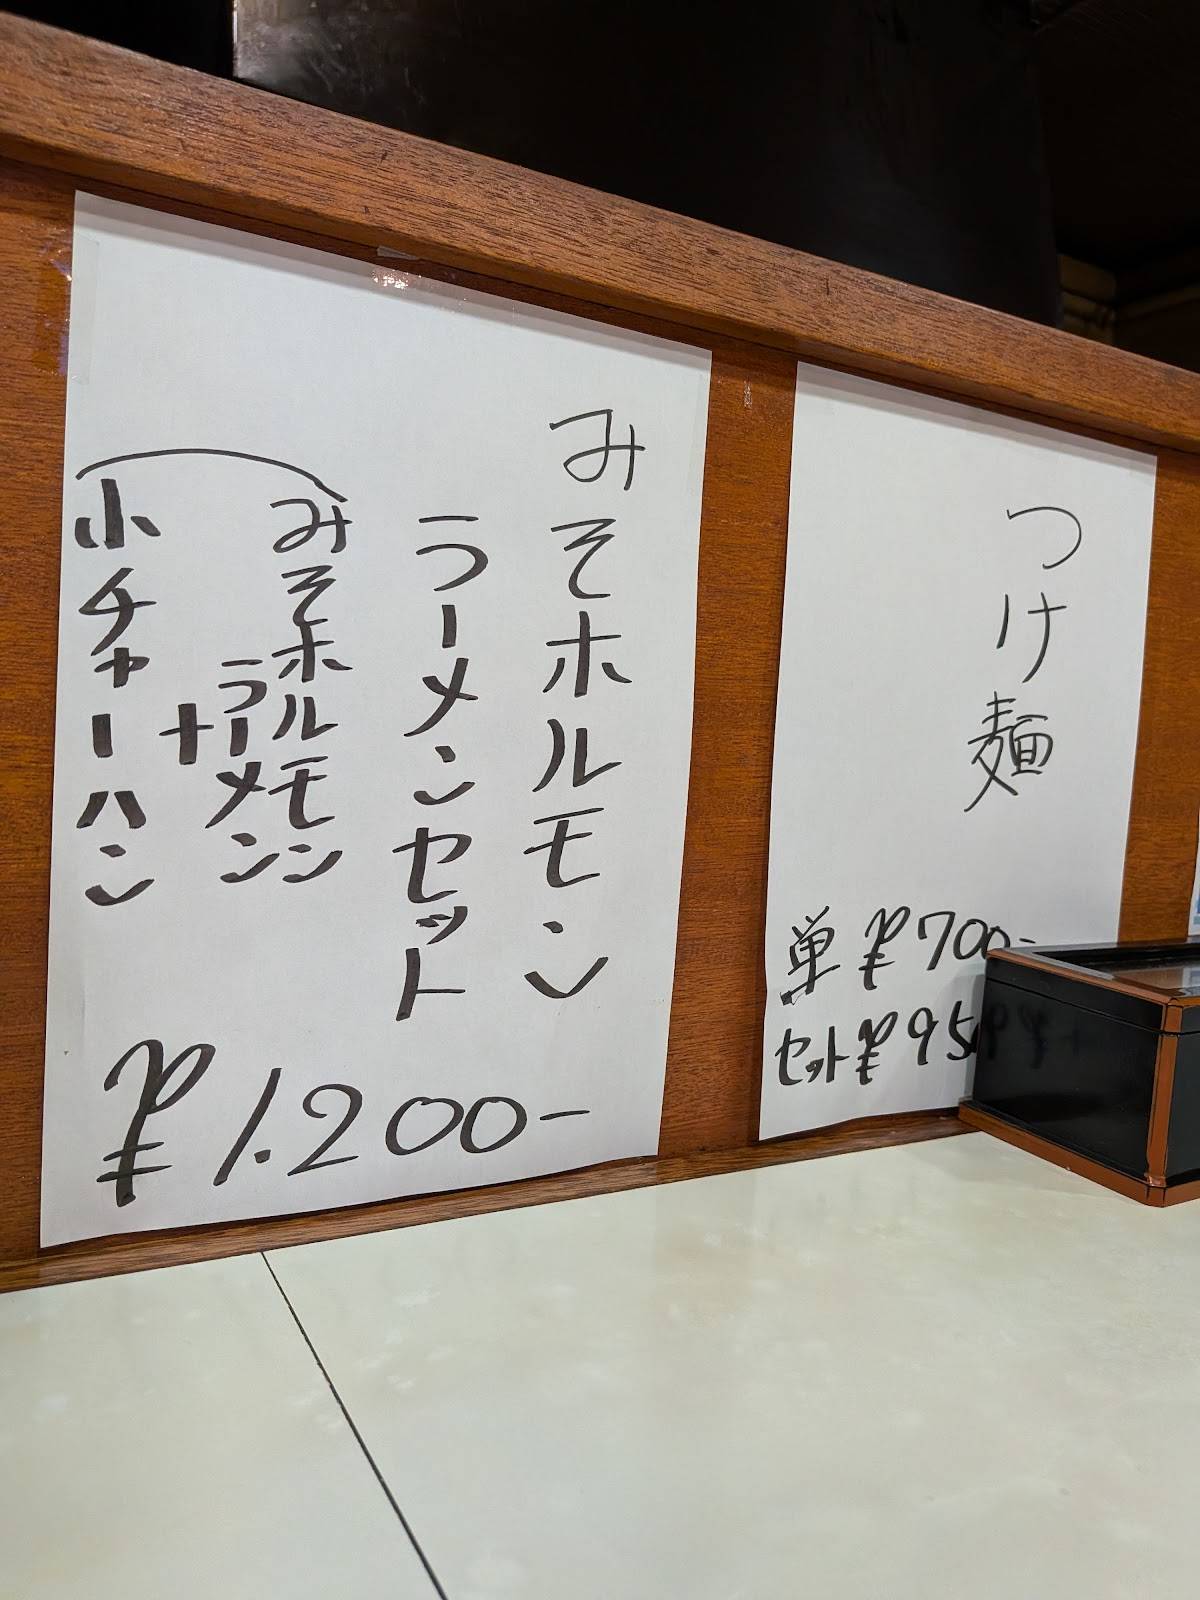 みそホルモン
ラーメンセット
みそホルモン
ラーメン
+
小チャーハン
¥1.200-
つけ麺
単¥700-
セット¥950